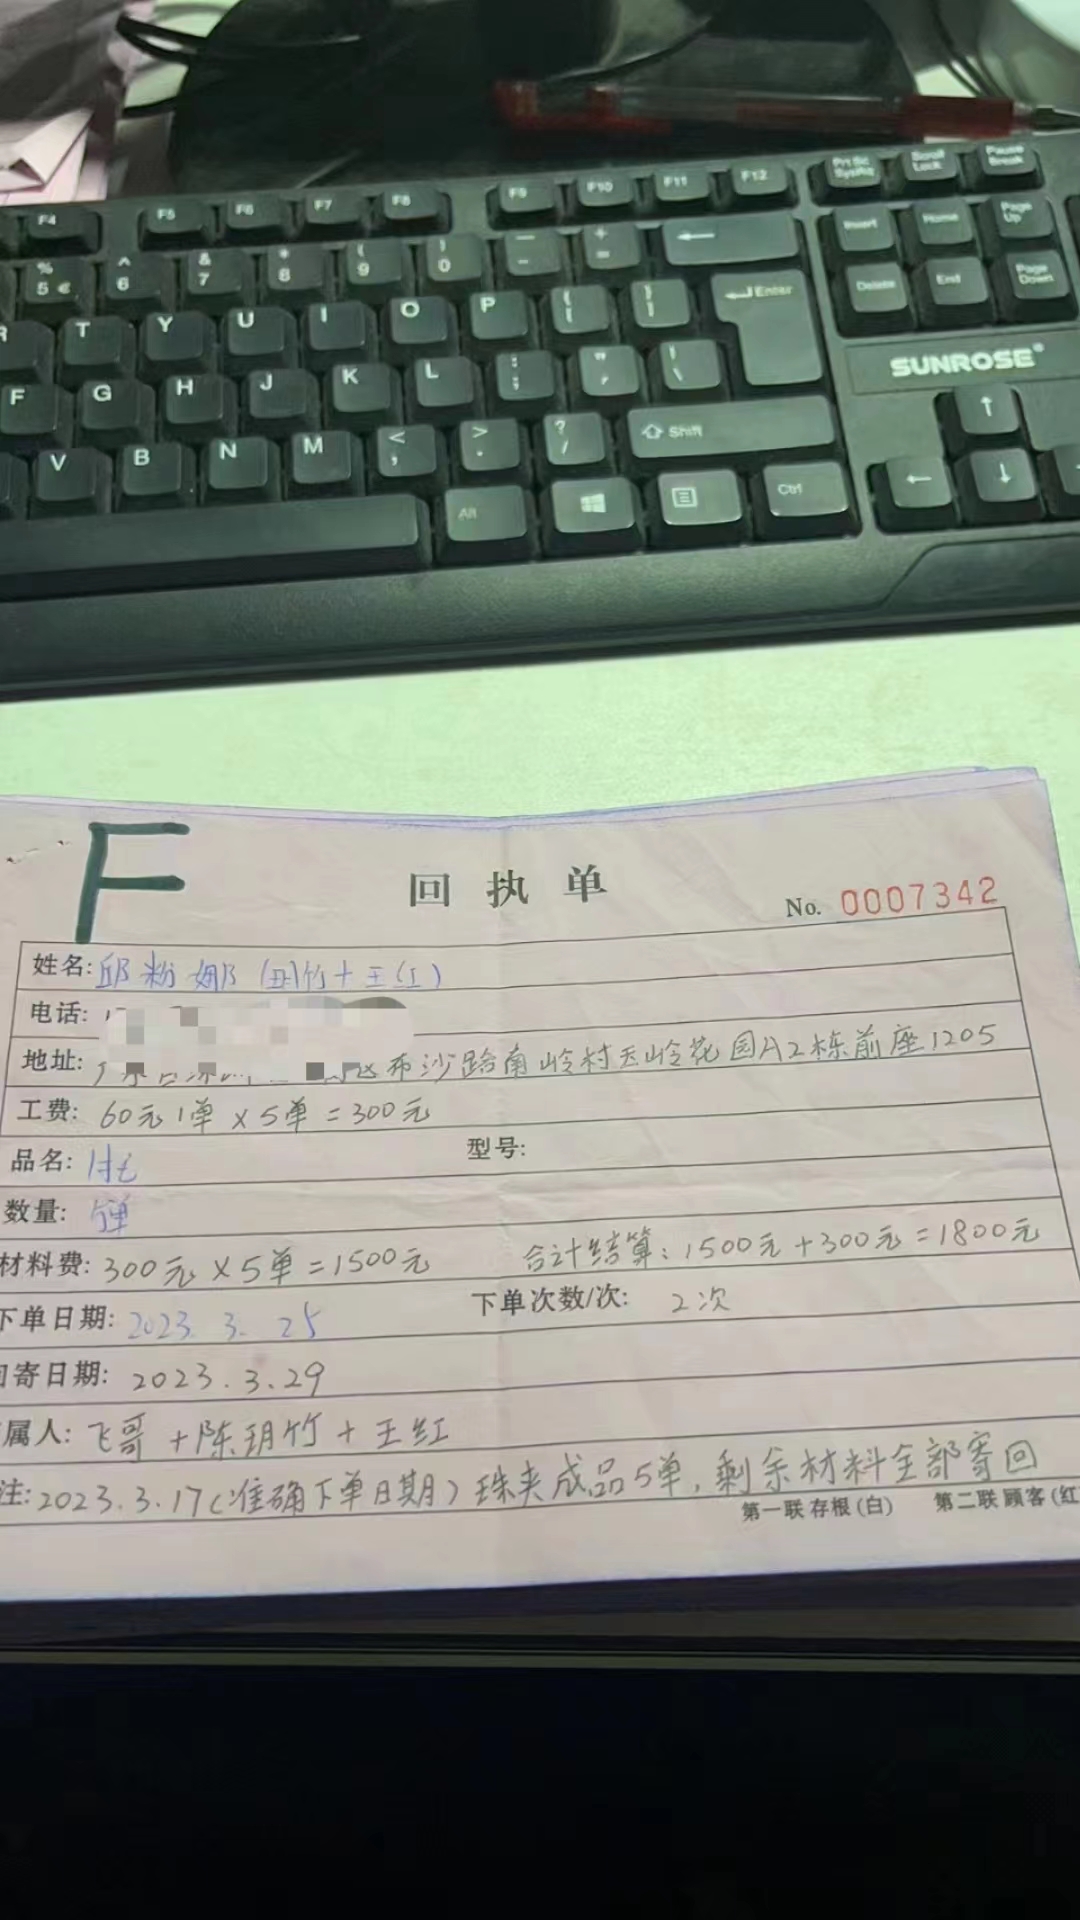 F4 F5 F6 F7 F8 F9 F10 F11 F12 Prt Sc SysRq Scroll Lock Pause Break
% 5 € ^ 6 & 7 * 8 ( 9 ) 0 — - + = ← Insert Home Page Up
R T Y U I O P { [ } ] Enter Delete End Page Down
F G H J K L : ; " ' | \ SUNROSE
V B N M < , > . ? / Shift ↑
Alt Ctrl ← ↓
F
回执单
No. 0007342
姓名: 邱粉娜 (玥竹+王红)
电话: 1
地址: 布沙路南岭村玉岭花园A2栋前座1205
工费: 60元1单×5单=300元
品名: 型号:
数量: 5单
材料费: 300元×5单=1500元 合计结算: 1500元+300元=1800元
下单日期: 2023.3.25 下单次数/次: 2次
寄日期: 2023.3.29
属人: 飞哥+陈玥竹+王红
注: 2023.3.17(准确下单日期)珠夹成品5单,剩余材料全部寄回
第一联 存根(白) 第二联 顾客(红